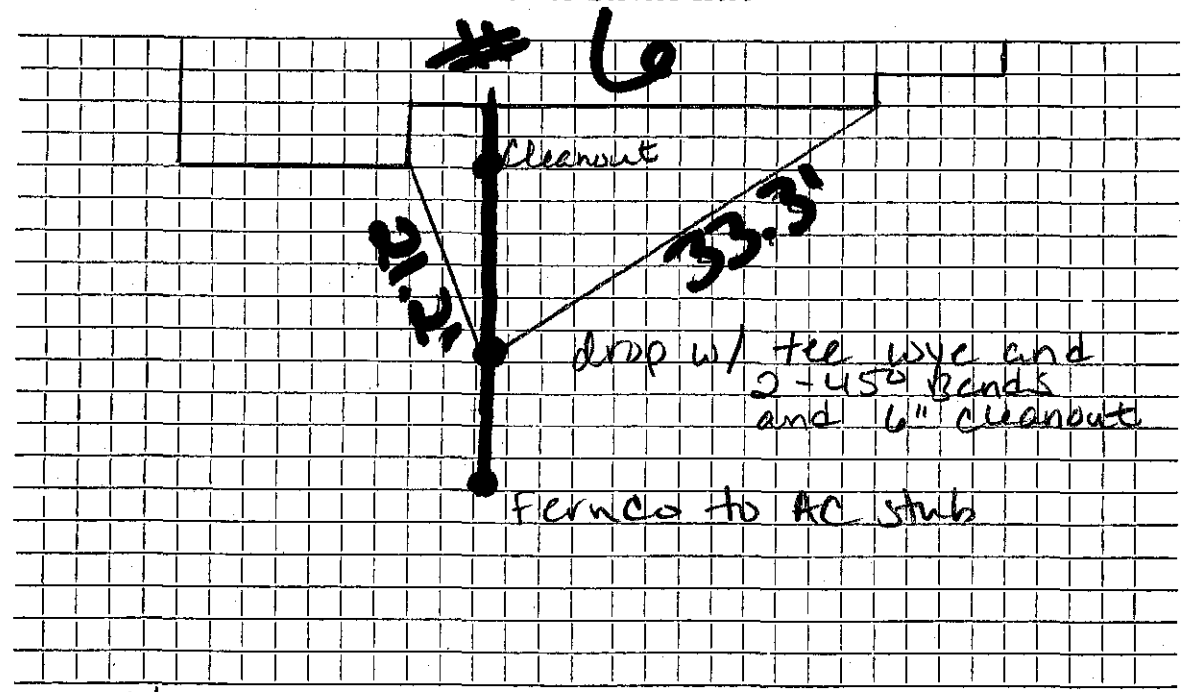 # 6
Cleanout
21.2'
33.3'
drop w/ tee wye and
2-45° Bends
and 6" cleanout
Fernco to AC stub